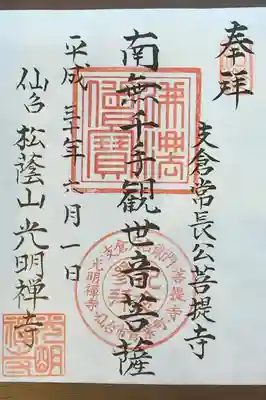 奉拝
支倉常長公菩提寺
南無千手観世音菩薩
平成三十年六月一日
仙台 松蔭山 光明禅寺
佛法僧寶
菩提寺
仙台市青葉町
光明禅寺
光明禅寺